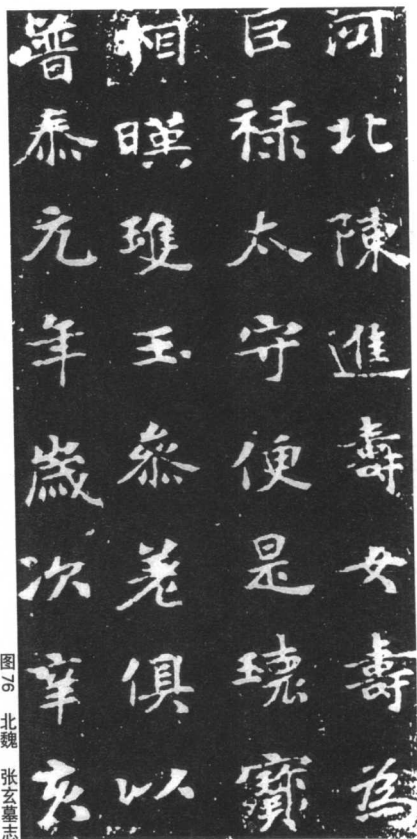 河北陳進壽女壽為
巨祿太守便是瓌寶
相暎瓊玉叅差俱以
普泰元年歲次辛亥
图76 北魏 张玄墓志